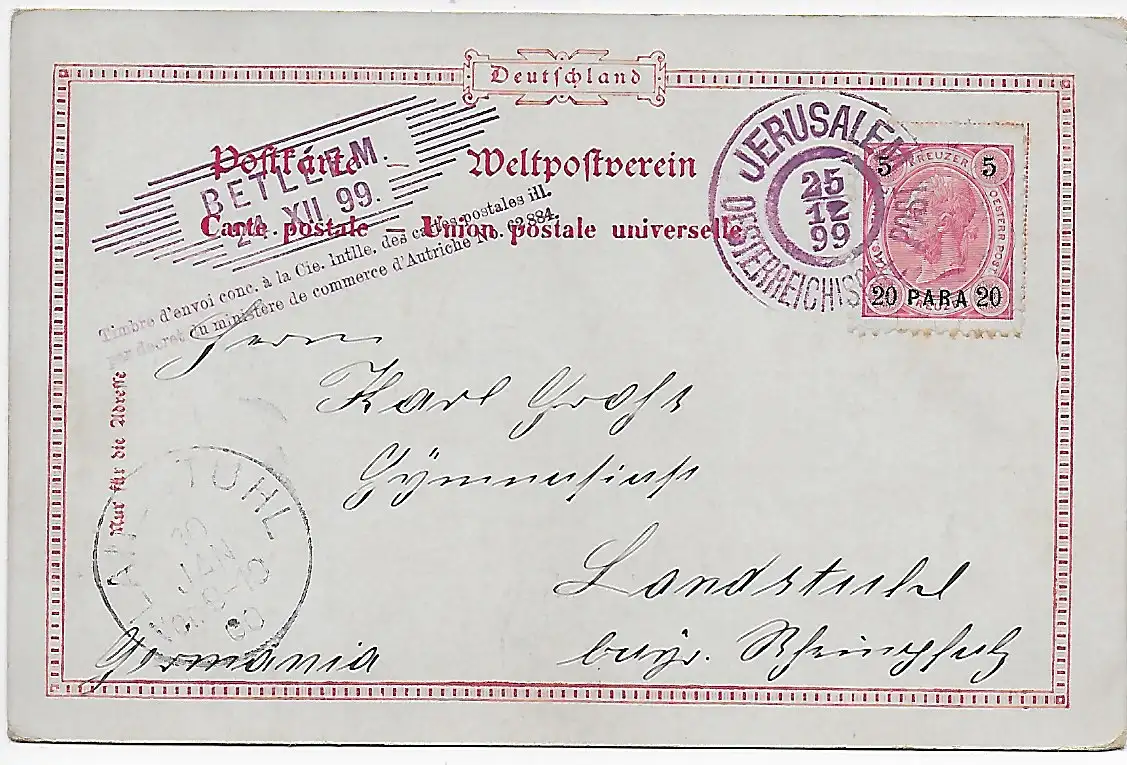 Deutschland
Postkarte Weltpostverein
Carte postale – Union postale universelle
BETLEEM.
24 XII 99.
Timbre d'envoi conc. à la Cie. Intlle. des cartes postales ill.
par decret du ministère de commerce d'Autriche No. 62.884.
JERUSALEM
25
12
99
OESTERREICHISCHE POST
5 KREUZER 5
OESTERR. POST
20 PARA 20
Nur für die Adresse
Herrn
Karl Groß
Gymnasiast
Landstuhl
bayr. Rheinpfalz
Germania
LANDSTUHL
10
JAN
9-10
00